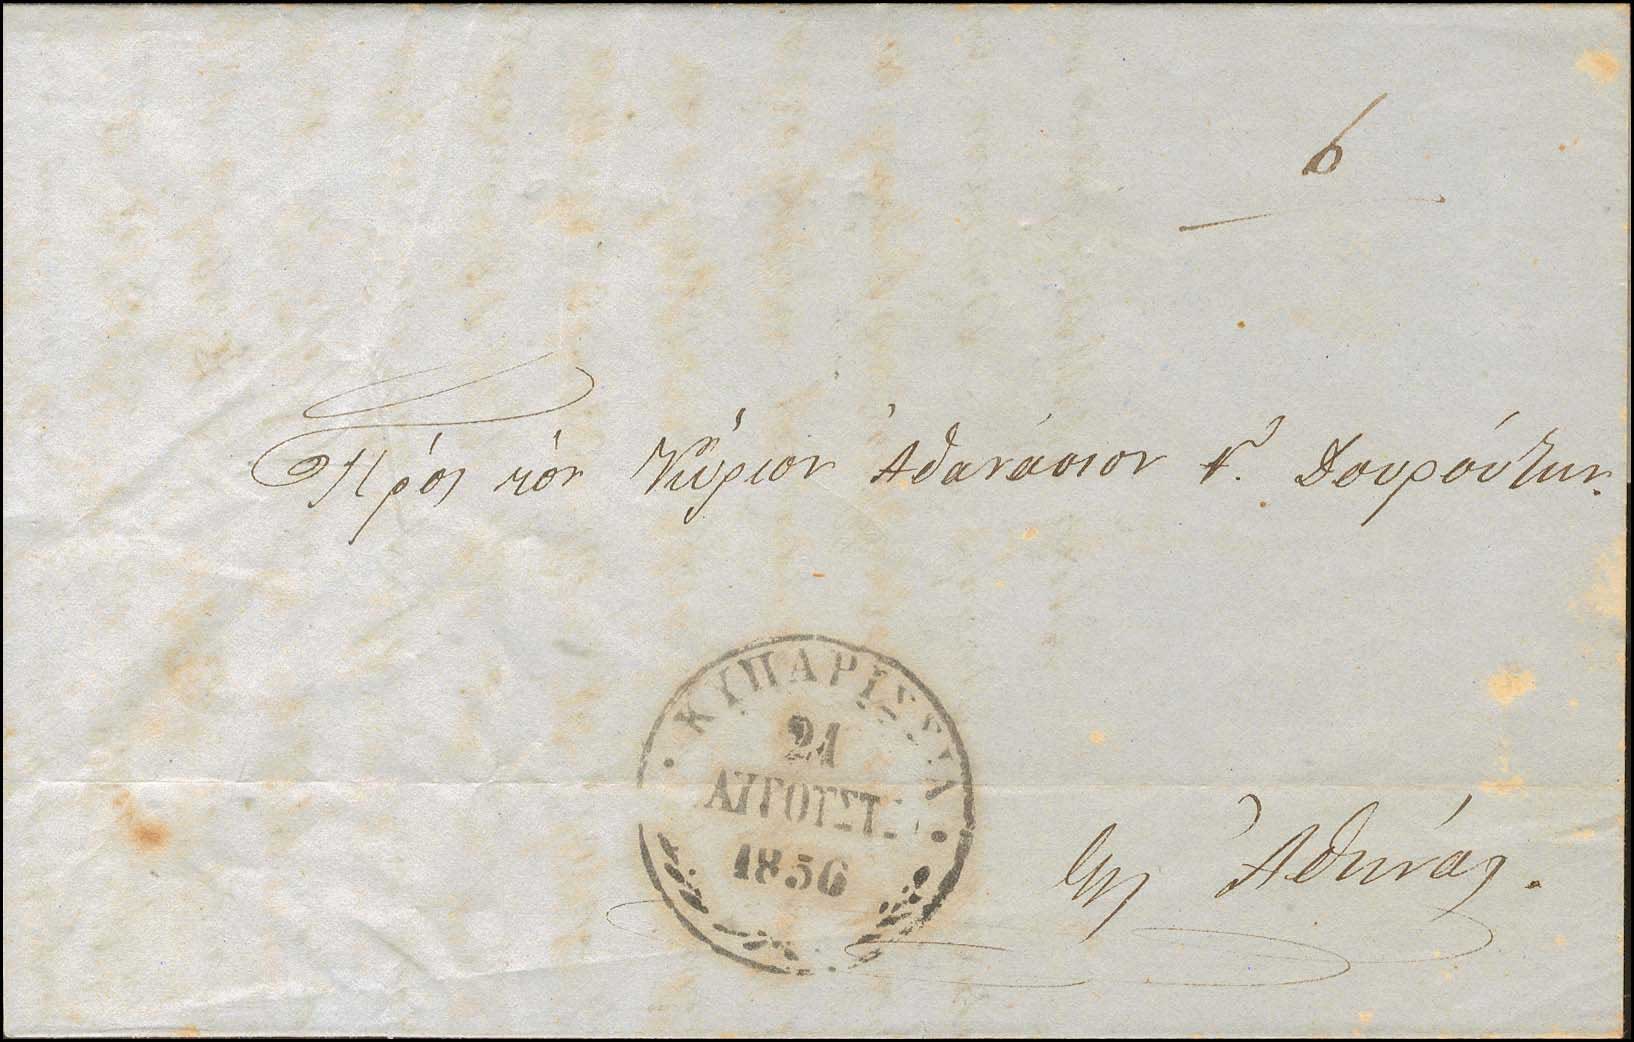 6
Πρὸς τὸν Κύριον Ἀθανάσιον Γ. Δουρούτην.
ΚΥΠΑΡΙΣΣΙΑ
21
ΑΥΓΟΥΣΤ.
1856
εἰς Ἀθήνας.